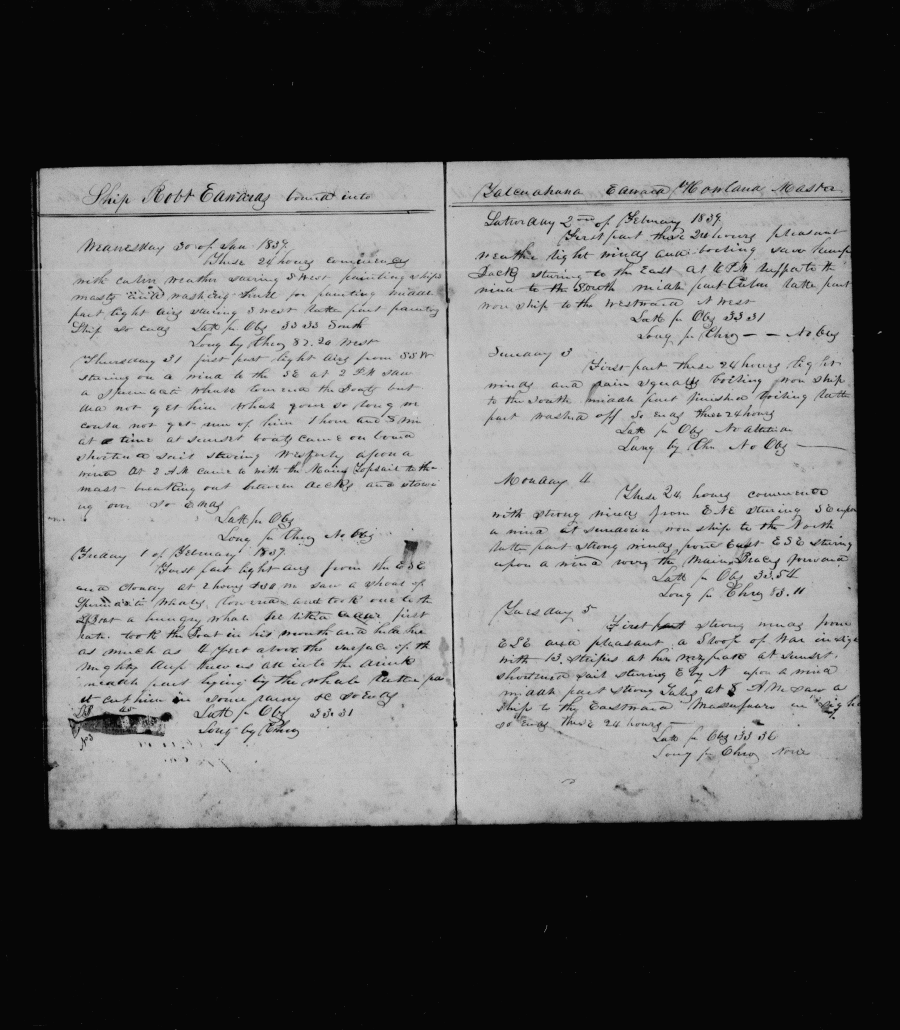 Ship Robt Edwards bound into
Wednesday 30 of Jan 1839
These 24 hours commences
with calm weather staring S West painting ships
masts and washing ship for painting middle
part light airs staring S west latter part painting
Ship so ends Latt pr Obs 33 33 South
Long by Chro 82.20 West
Thursday 31 first part light airs from SSW
staring on a wind to the SE at 2 P.M saw
a Spermaceti whale lowered the boats but
did not get him whale gone so long we
could not get run of him 1 hour and 5 mi
at a time at sunset boats came on board
shortened sail staring Westerly upon a
wind at 2 A.M came to with the Main Topsail to the
mast breaking out between decks and stowi
ng over So Ends
Latt pr Obs
Long pr Chro No Obs
Friday 1 of February 1839
First part light airs from the ESE
and cloudy at 2 hours m saw a shoal of
Spermaceti Whales lowered and took one with
a hungry whale first
rate took the Boat in his mouth and held her
as much as 4 feet above the surface of the
mighty deep threw us all into the drink
middle part lying by the whale latter pa
rt cut him in some rainy &c So Ends
Latt pr Obs 33.31
Long by Chro
No 3
Talcuahana Edward Howland Master
Saturday 2nd of February 1839
First part these 24 hours pleasant
weather light winds and boiling saw hump
Backs staring to the East at 4 P.M the
wind to the South middle part Calm latter part
wore ship to the Westward N West
Latt pr Obs 33 31
Long pr Chro - - No Obs
Sunday 3
First part these 24 hours light
winds and rain squalls boiling wore ship
to the South middle part finished boiling latter
part washed off So ends these 24 hours
Latt pr Obs No
Long by Chro No Obs
Monday 4
These 24 hours commence
with strong winds from ENE staring SE upon
a wind at sundown wore ship to the North
latter part strong winds from East ESE staring
upon a wind the Main Braces forward
Latt pr Obs 33.54
Long pr Chro 83.11
Tuesday 5
First part strong winds from
ESE and pleasant a Sloop of War in sight
with 13 stripes at her peak at sunset
shortened sail staring E by N upon a wind
middle part strong Gales at 5 A.M saw a
ship to the Eastward Massafuero in sight
so ends these 24 hours
Latt pr Obs 33 36
Long pr Chro None